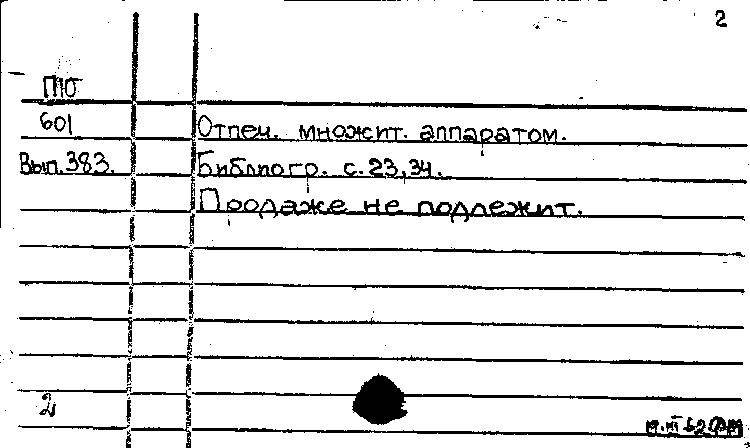 2
П10
601
Отпеч. множит. аппаратом.
Вып. 383.
Библиогр. с. 23, 34.
Продаже не подлежит.
2